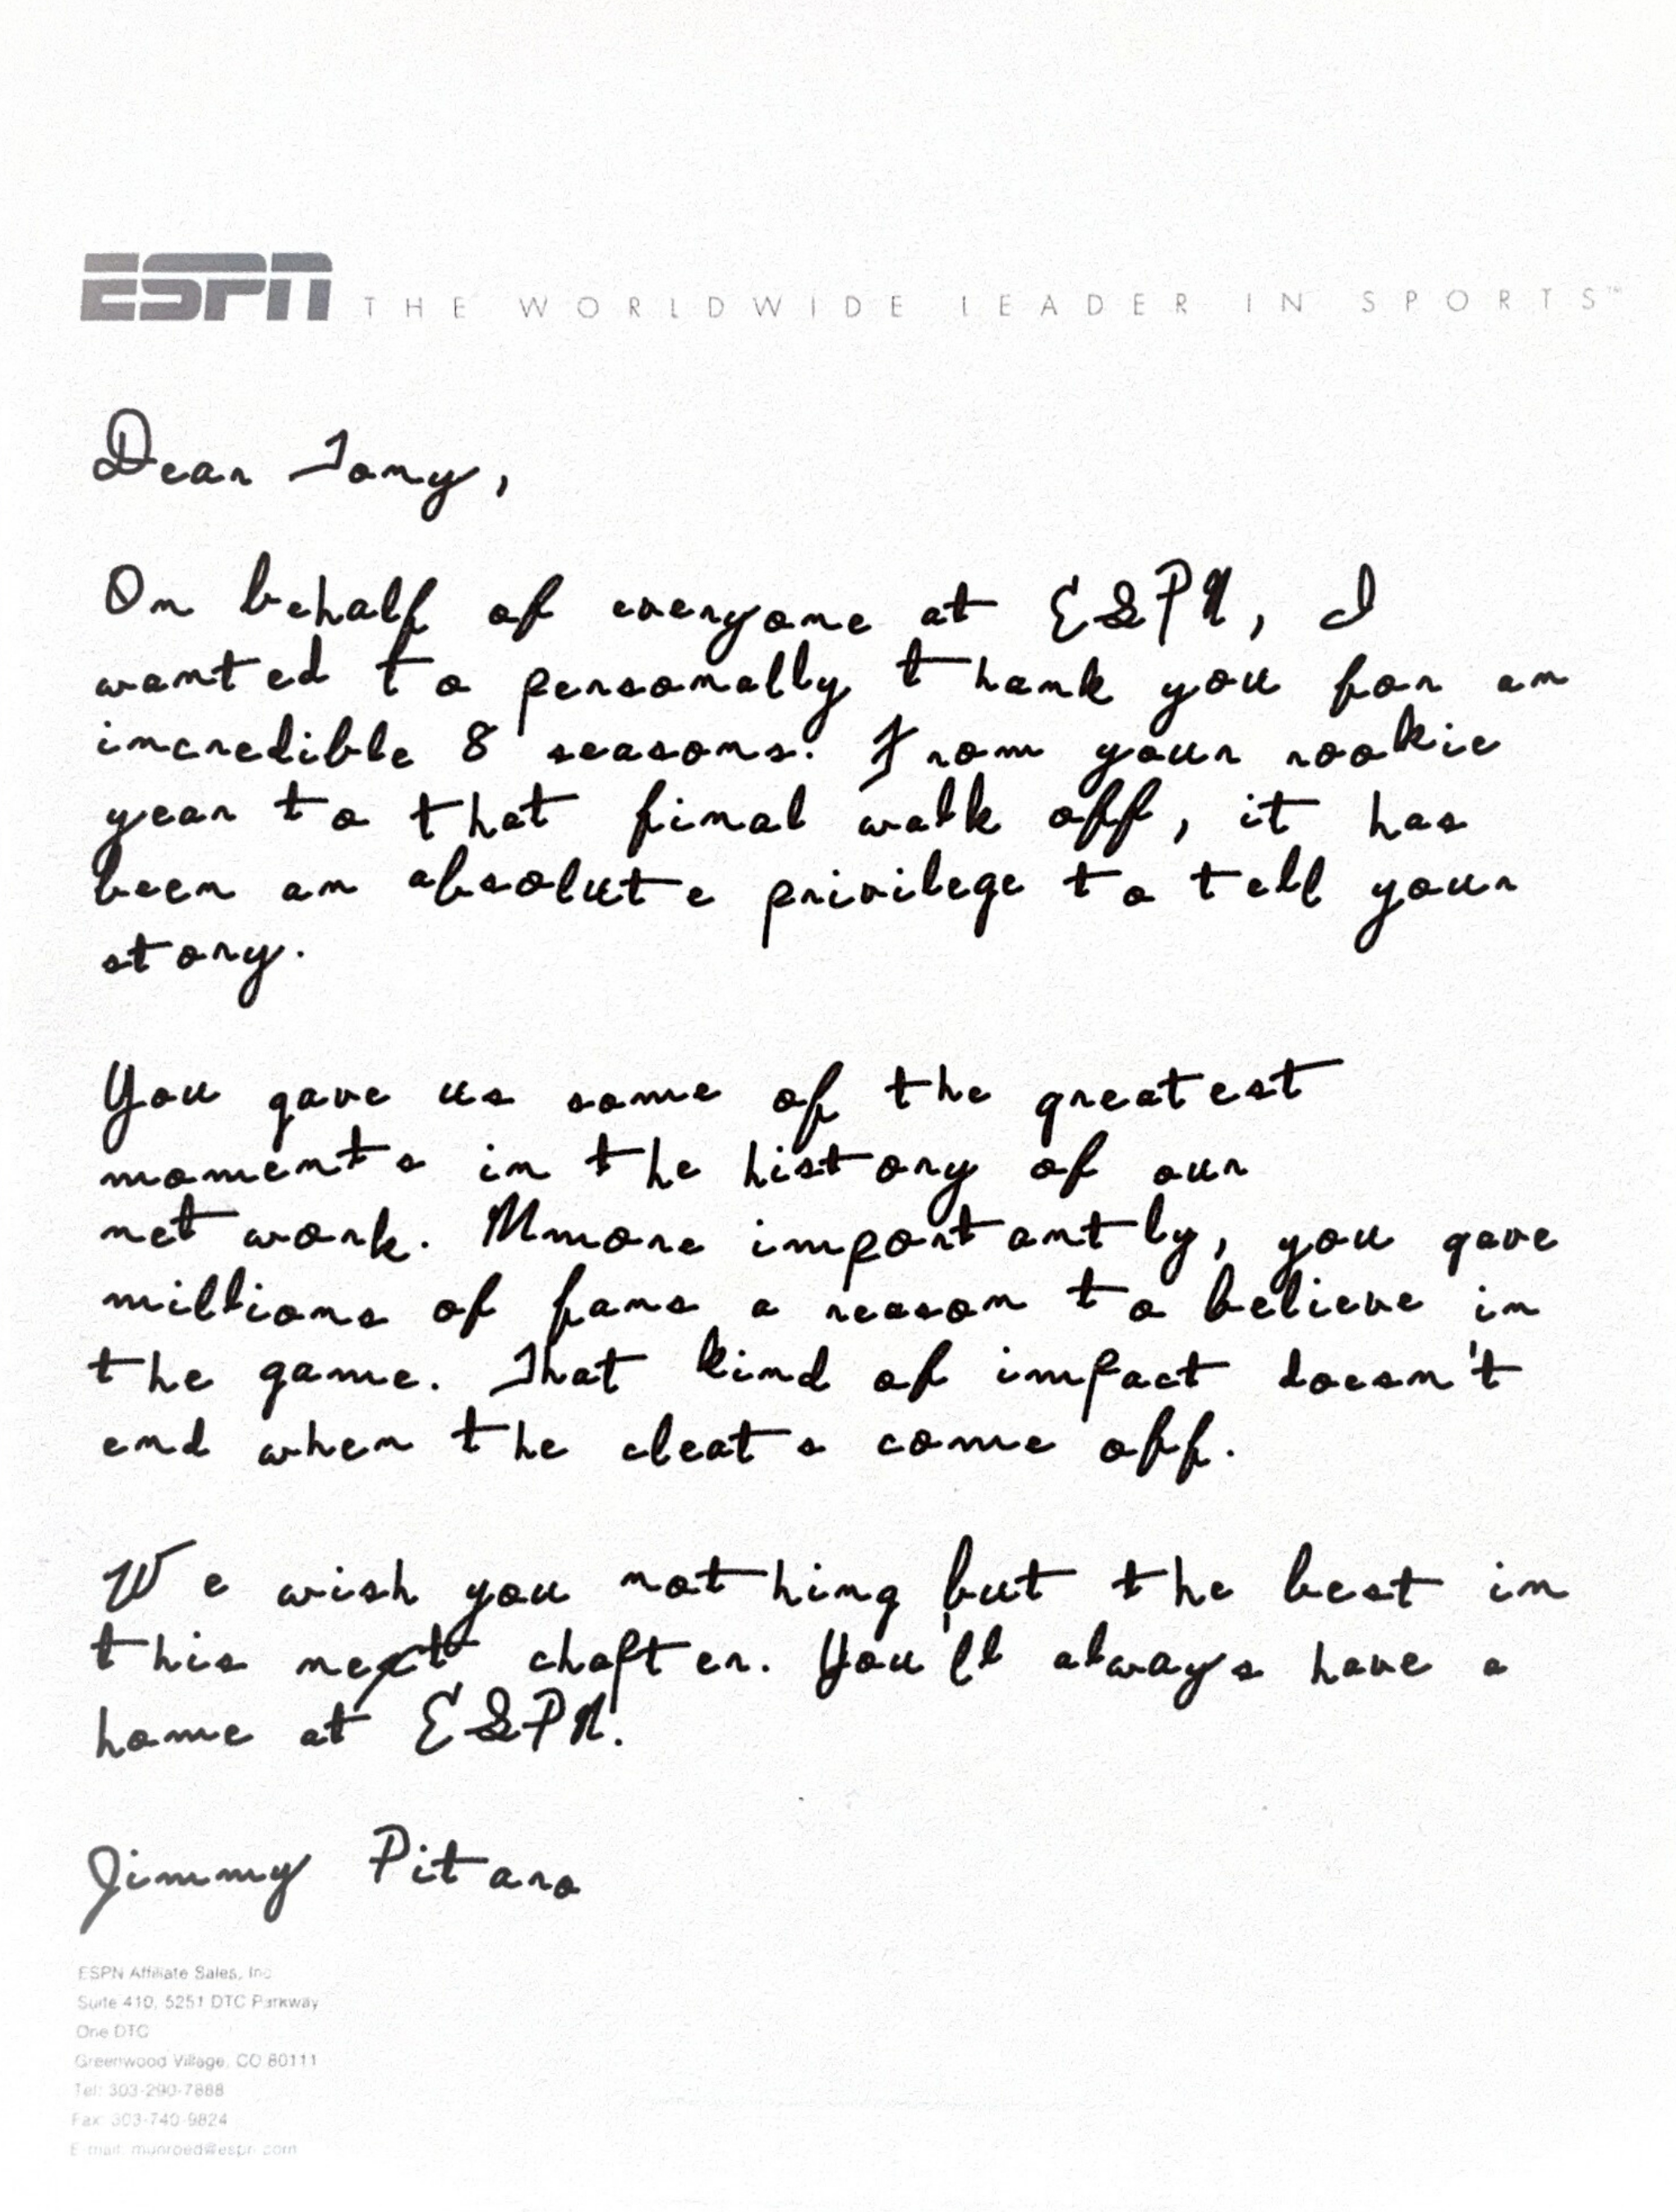 ESPN THE WORLDWIDE LEADER IN SPORTS™
Dear Tony,
On behalf of everyone at ESPN, I
wanted to personally thank you for an
incredible 8 seasons. From your rookie
year to that final walk off, it has
been an absolute privilege to tell your
story.
You gave us some of the greatest
moments in the history of our
network. Mmore importantly, you gave
millions of fans a reason to believe in
the game. That kind of impact doesn't
end when the cleats come off.
We wish you nothing but the best in
this next chapter. You'll always have a
home at ESPN.
Jimmy Pitaro
ESPN Affiliate Sales, Inc
Suite 410, 5251 DTC Parkway
One DTC
Greenwood Village, CO 80111
Tel: 303-290-7888
Fax: 303-740-9824
E-mail: munroed@espn.com